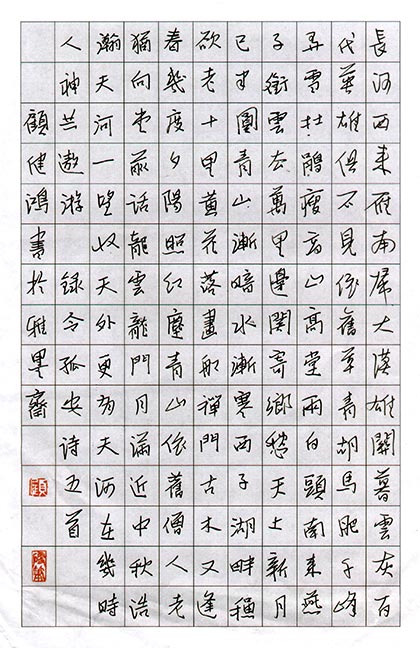 長河西來雁南歸大漠雄關暮雲灰百
代英雄俱不見依舊草青胡馬肥子峰
弄雪杜鵑瘦高山高堂兩白頭南來燕
子銜雲去萬里邊關寄鄉愁天上新月
已半圓青山漸暗水漸寒西子湖畔穐
欲老十里黃花落畫船禪門古木又逢
春幾度夕陽照紅塵青山依舊僧人老
猶向堂前話龍雲龍門月滿近中秋浩
瀚天河一望收天外更多天河在幾時
人神共遨游 錄令狐安詩五首
顧健鴻書於雅墨齋